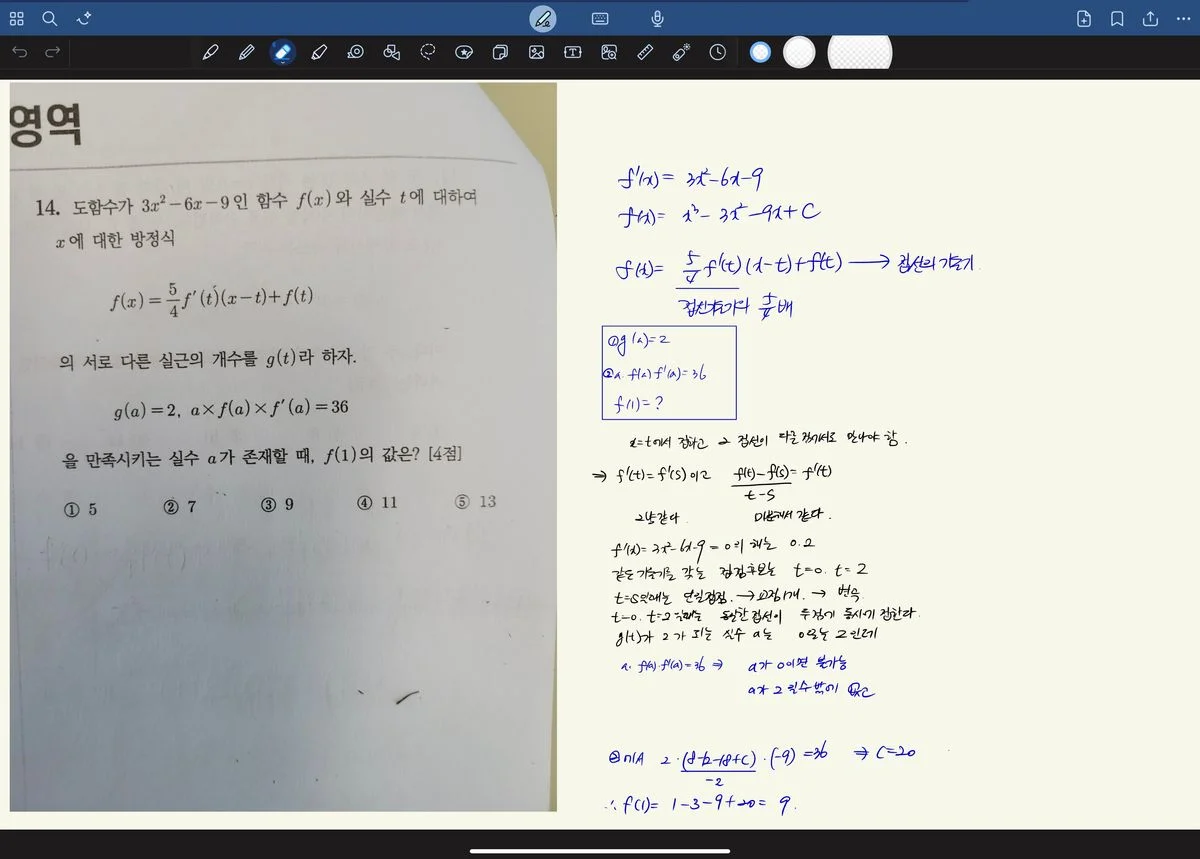 영역
14. 도함수가 3x²-6x-9인 함수 f(x)와 실수 t에 대하여
x에 대한 방정식
f(x)=5/4 f′(t)(x-t)+f(t)
의 서로 다른 실근의 개수를 g(t)라 하자.
g(a)=2, a×f(a)×f′(a)=36
을 만족시키는 실수 a가 존재할 때, f(1)의 값은? [4점]
① 5 ② 7 ③ 9 ④ 11 ⑤ 13
f'(x)= 3x²-6x-9
f(x)= x³- 3x²-9x+C
f(x)= 5/4 f'(t)(x-t)+f(t) → 접선의 기울기.
5/4배
①g(a)=2
②a. f(a) f'(a)=36
f(1)=?
x=t에서 접하고 그 접선이 다른 점에서도 만나야 함.
⇒ f'(t)=f'(s)이고 (f(t)-f(s))/(t-s) = f'(t)
f'(x)= 3x²-6x-9=0의 해는 0.2
같은 기울기를 갖는 접점후보는 t=0. t=2
t=0. t=2 동일한 접선이 두점에 동시에 접한다.
g(t)가 2가 되는 실수 a는 0또는 2인데
a. f(a).f'(a)=36 ⇒ a가 0이면 불가능
a가 2일수밖에 없고
②에서 2·(8-12-18+C)·(-9)=36 ⇒ C=20
-2
∴ f(1)= 1-3-9+20= 9.